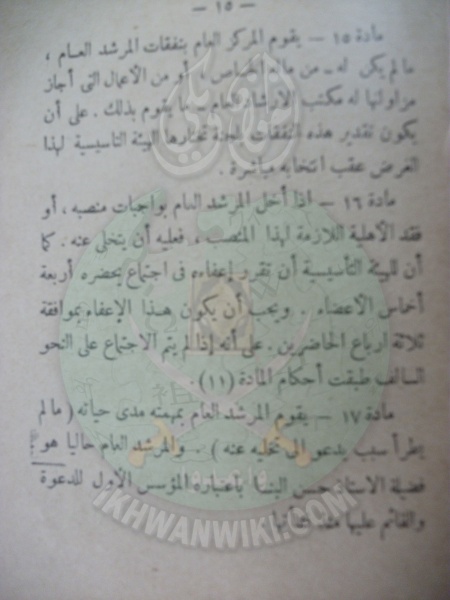 — ١٥ —
مادة ١٥ — يقوم المركز العام بنفقات المرشد العام ،
مالم يكن له ـ من ماله الخاص ، أو من الأعمال التى أجاز
مزاولتها له مكتب الإرشاد العام ـ ما يقوم بذلك . على أن
يكون تقدير هذه النفقات للجنة تختارها الهيئة التأسيسية لهذا
الغرض عقب انتخابه مباشرة .
مادة ١٦ — اذا أخل المرشد العام بواجبات منصبه ، أو
فقد الأهلية اللازمة لهذا المنصب ، فعليه أن يتخلى عنه . كما
أن للهيئة التأسيسية أن تقرر إعفاءه فى اجتماع يحضره أربعة
أخماس الأعضاء . ويجب أن يكون هذا الإعفاء بموافقة
ثلاثة ارباع الحاضرين . على أنه إذا لم يتم الاجتماع على النحو
السالف طبقت أحكام المادة (١١) .
مادة ١٧ — يقوم المرشد العام بمهمته مدى حياته ( ما لم
يطرأ سبب يدعو إلى تخليه عنه ) . والمرشد العام حاليا هو
فضيلة الاستاذ حسن البنا باعتباره المؤسس الأول للدعوة
والقائم عليها منذ نشأتها
IKHWANWIKI.COM